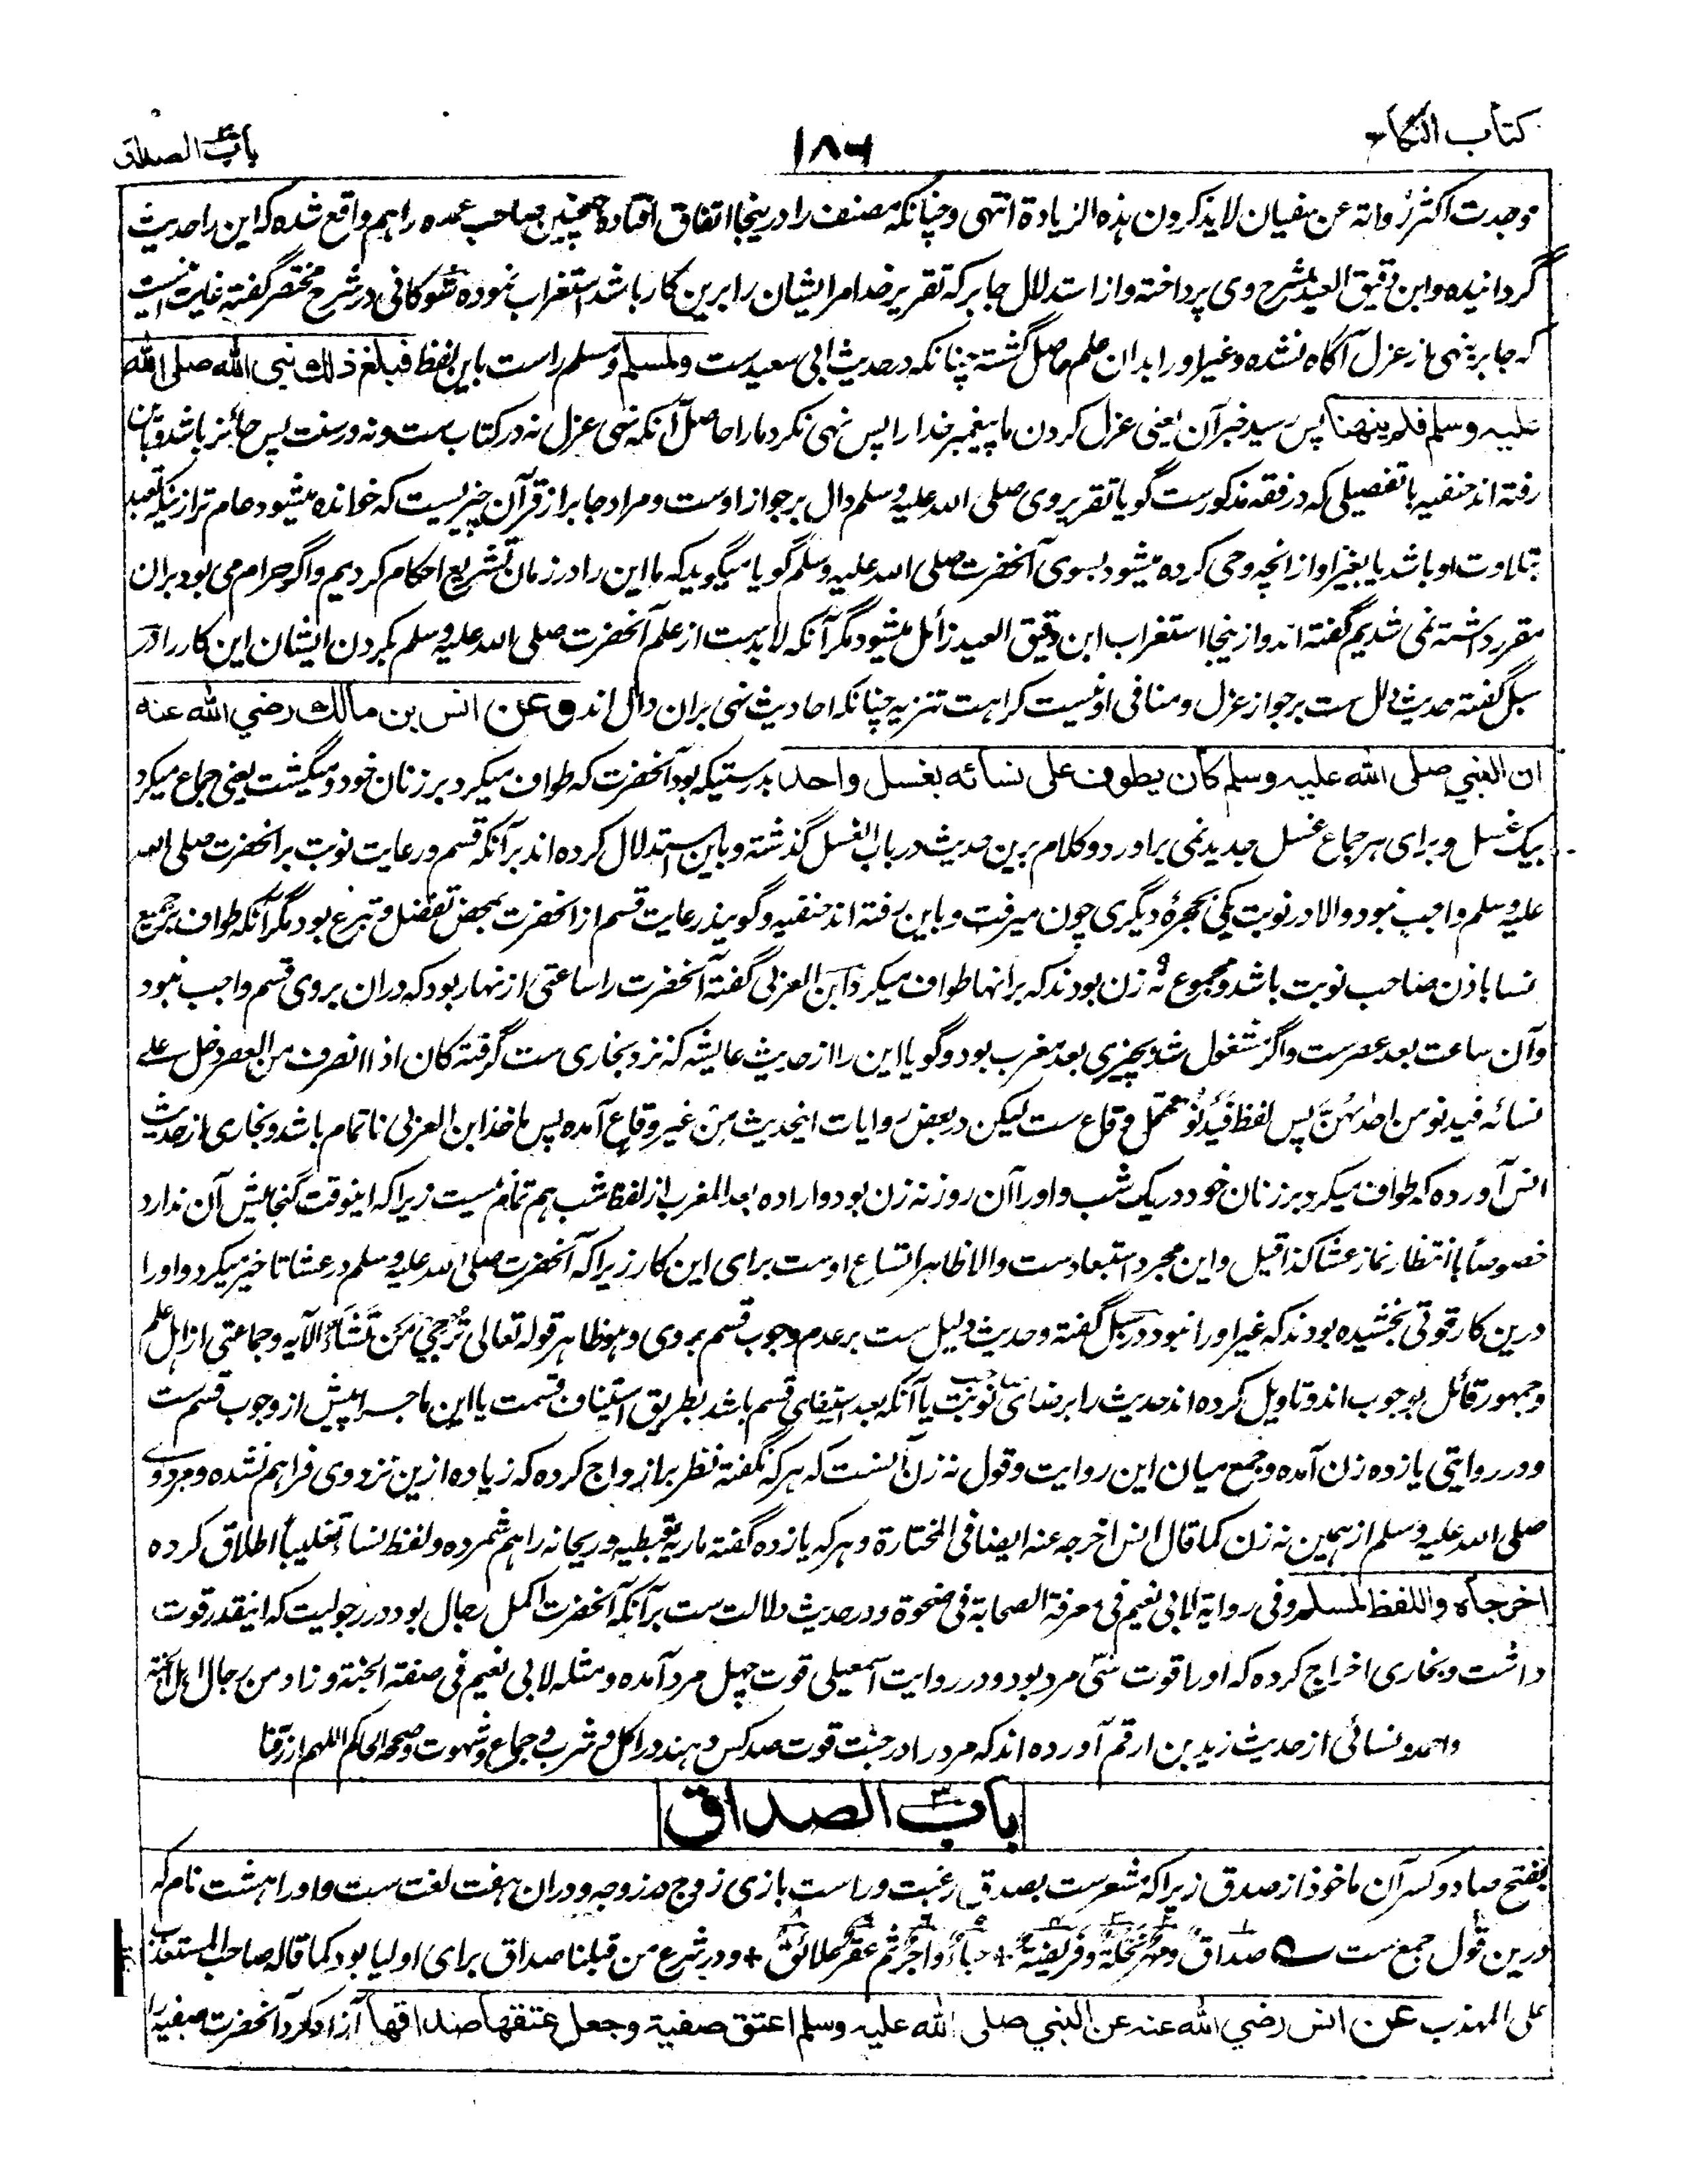 کتاب النکاح
۱۸۶
باب الصداق
فوجدت اکثر رواته عن سفیان لا یذکرون هذه الزیادة انتهی و چنانکه مصنف را درینجا اتفاق افتاده همچنین صاحب عمده را هم واقع شده که این را حدیث
گردانیده و ابن دقیق العید بشرح وی پرداخته و از استدلال جابر که تقریر خدا مر ایشان را برین کار باشد استغراب نموده شوکانی در شرح مختصر گفته غایت آنست
که جابر بنهی از عزل آگاه نشده و غیر او را بدان علم حاصل گشته چنانکه در حدیث ابی سعید ست ولمسلم و مسلم راست باین لفظ فبلغ ذلك نبی الله صلی الله
علیه وسلم فلم ینهنا پس رسید خبر آن یعنی عزل کردن ما پیغمبر خدا را پس نهی نکرد ما را حاصل آنکه نهی عزل نه در کتاب ست و نه در سنت پس جائز باشد و باین
رفته اند حنفیه با تفصیلی که در فقه مذکورست گویا تقریر وی صلی الله علیه وسلم دال بر جواز اوست و مراد جابر از قرآن چیزیست که خوانده میشود عام تر ازینکه تعبد
بتلاوت او باشد یا بغیر او از انچه وحی کرده میشود بسوی آنحضرت صلی الله علیه وسلم گویا میگوید که ما این را در زمان تشریع احکام کردیم و اگر حرام می بود بران
مقرر داشته نمی شدیم گفته اند و ازینجا استغراب ابن دقیق العید زائل میشود مگر آنکه لابدست از علم آنحضرت صلی الله علیه وسلم بکردن ایشان این کار را و در
سبل گفته حدیث دال ست بر جواز عزل و منافی او نیست کراهت تنزیه چنانکه احادیث نهی بران دال اند وعن انس بن مالك رضي الله عنه
ان النبي صلی الله علیه وسلم کان یطوف علی نسائه بغسل واحد بدرستیکه بود آنحضرت که طواف میکرد بر زنان خود و میگشت یعنی جماع میکرد
بیک غسل و برای هر جماع غسل جدید نمی برآورد و کلام برین حدیث در باب الغسل گذشته و باین استدلال کرده اند بر آنکه قسم و رعایت نوبت بر انحضرت صلی الله
علیه وسلم واجب نبود والا در نوبت یکی بحجرهٔ دیگری چون میرفت و باین رفته اند حنفیه و گویند رعایت قسم از انحضرت بمحض تفضل و تبرع بود مگر آنکه طواف بر جمیع
نسا باذن صاحب نوبت باشد و مجموع نه زن بودند که بر انها طواف میکرد ابن العربی گفته آنحضرت را ساعتی از نهار بود که دران بروی قسم واجب نبود
وآن ساعت بعد عصرست و اگر مشغول شد بچیزی بعد مغرب بود و گویا این را از حدیث عایشه که نزد بخاری ست گرفته کان اذا انصرف من العصر دخل علی
نسائه فیدنو من احداهن پس لفظ فیدنو محتمل وقاع ست لیکن در بعض روایات اینحدیث من غیر وقاع آمده پس ماخذ ابن العربی ناتمام باشد و بخاری از حدیث
انس آورده که طواف میکرد بر زنان خود در یک شب و او را آن روز نه زن بود و اراده بعد المغرب از لفظ شب هم تمام نیست زیرا که اینوقت گنجایش آن ندارد
خصوصاً با انتظار نماز عشا کذا قیل و این مجرد استبعادست والا ظاهر اتساع اوست برای این کار زیرا که آنحضرت صلی الله علیه وسلم در عشا تاخیر میکرد و او را
درین کار قوتی بخشیده بودند که غیر او را نبود در سبل گفته و حدیث دلیل ست بر عدم وجوب قسم بر وی و هو ظاهر قوله تعالی ترجي من تشاء الآیه و جماعتی از اهل علم
و جمهور قائل بوجوب اند و تاویل کرده اند حدیث را برضای نوبت یا آنکه بعد استیفای قسم باشد بطریق استیناف قسمت یا این ماجرا پیش از وجوب قسم ست
و در روایتی یازده زن آمده و جمع میان این روایت و قول نه زن آنست که هر که نه گفته نظر بازواج کرده که زیاده ازین نزد وی فراهم نشده و مرد وی
صلی الله علیه وسلم از همین نه زن کما قال انس اخرجه عنه ایضا فی المختارة و هر که یازده گفته ماریه قبطیه و ریحانه را هم شمرده و لفظ نسا تغلیباً اطلاق کرده
اخرجاه واللفظ لمسلم و فی روایة لابی نعیم فی معرفة الصحابة فی ضحوة و در حدیث دلالت ست بر آنکه آنحضرت اکمل رجال بود در رجولیت که اینقدر قوت
داشت و بخاری اخراج کرده که او را قوت سی مرد بود و در روایت اسمعیلی قوت چهل مرد آمده و مثله لابی نعیم فی صفة الجنة و زاد من رجال اهل الجنة
و احمد و نسائی از حدیث زید بن ارقم آورده اند که مرد را در جنت قوت صد کس دهند در اکل و شرب و جماع و شهوت و صححه الحاکم اللهم ارزقنا
باب الصداق
بفتح صاد و کسر آن ماخوذ از صدق زیرا که مشعرست بصدق رغبت و راست بازی زوج در زوجه و دران هفت لغت ست و او را هشت نام که
درین قول جمع ست صداق ومهر نحلة وفریضة + حباء واجر ثم عقر علائق + و در شرع من قبلنا صداق برای اولیا بود کما قاله صاحب المستعذب
علی المهذب عن انس رضي الله عنه عن النبي صلی الله علیه وسلم اعتق صفیة وجعل عتقها صداقها آزاد کرد آنحضرت صفیه را